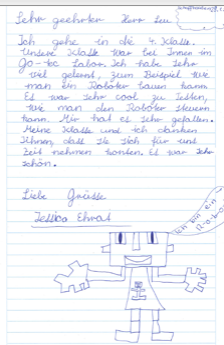 Sehr geehrter Herr Leu
Ich gehe in die 4. Klasse.
Unsere Klasse war bei Innen im
Go-tec Labor. Ich habe sehr
viel gelernt, zum Beispiel wie
man ein Roboter bauen kann.
Es war sehr cool zu testen,
wie man den Roboter steuern
kann. Mir hat es sehr gefallen.
Meine Klasse und ich danken
Ihnen, dass Sie sich für uns
Zeit nehmen konten. Es war sehr
schön.
Liebe Grüsse
Jessica Ehrat
Ich bin ein
Robo